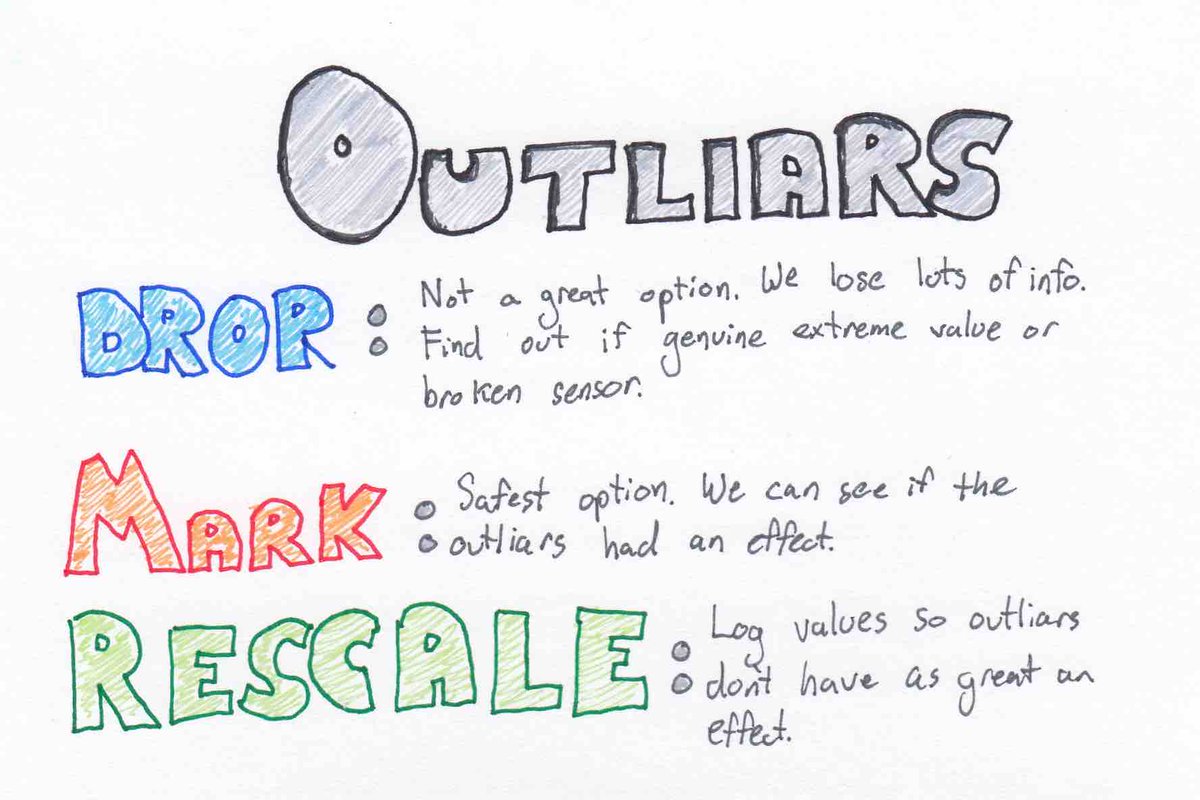 OUTLIARS
DROP : Not a great option. We lose lots of info.
Find out if genuine extreme value or
broken sensor.
MARK : Safest option. We can see if the
outliars had an effect.
RESCALE : Log values so outliars
don't have as great an
effect.